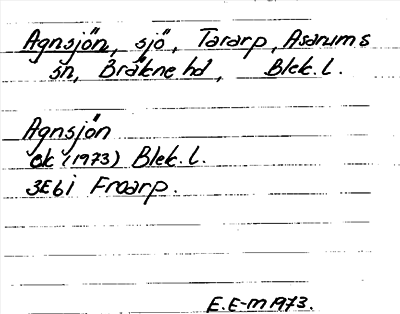 Agnsjön, sjö, Tararp, Asarums
sn, Bräkne hd, Blek. l.
Agnsjön
ek (1973) Blek. l.
3E6i Froarp.
E. E-m 1973.